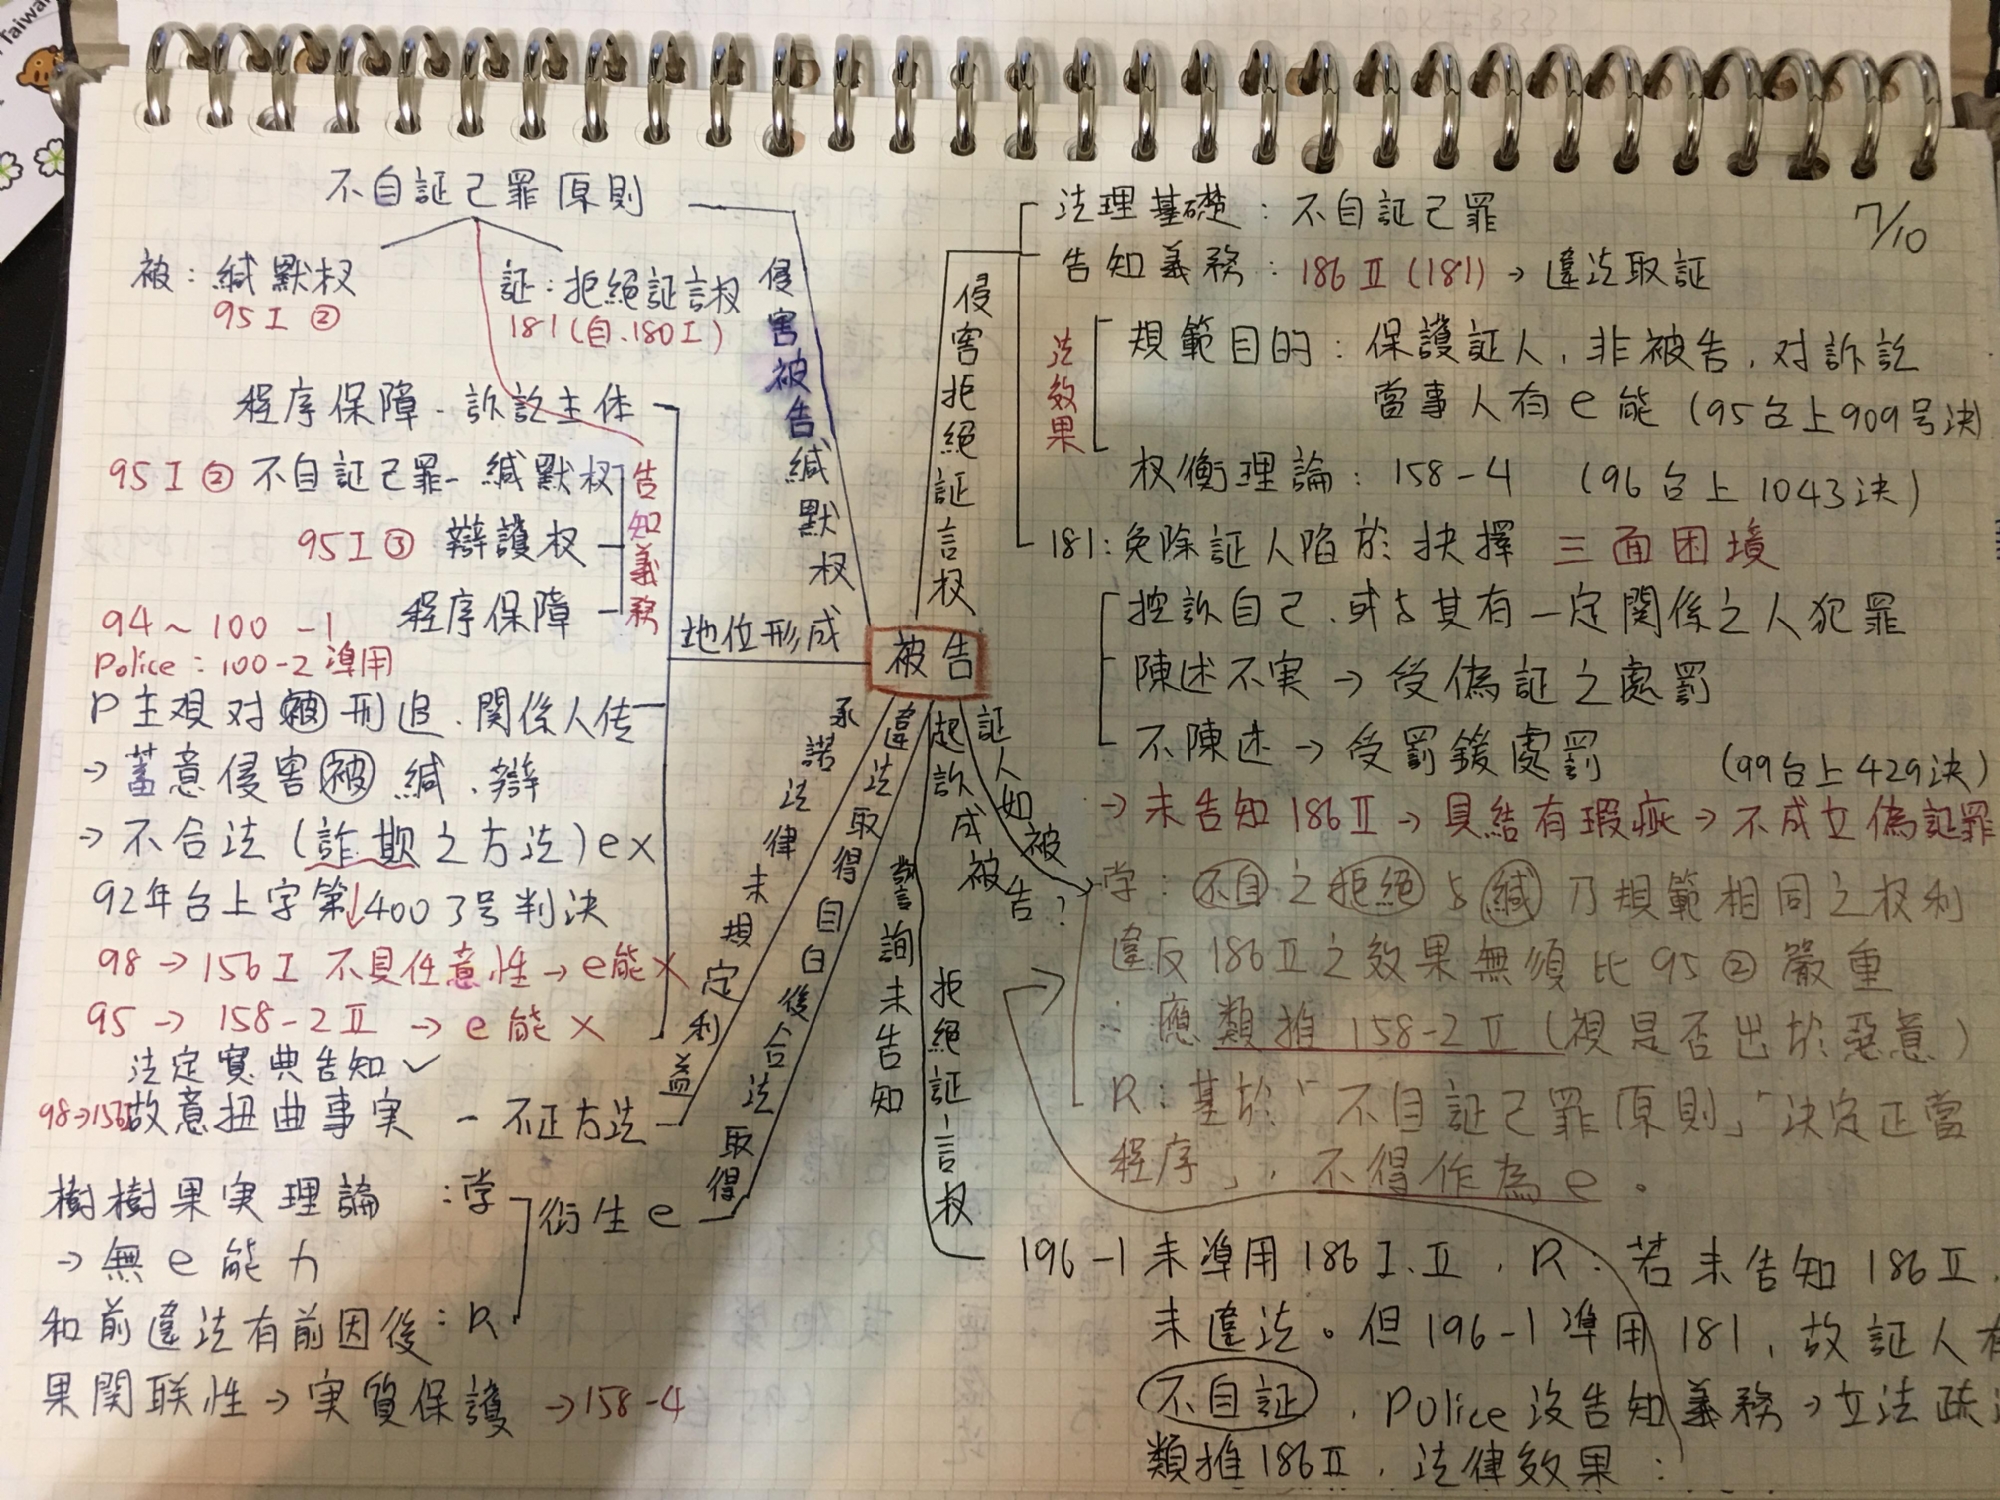 Taiwan
7/10
不自証己罪原則
被：緘默权
95 I ②
証：拒絕証言权
181（自.180 I）
侵害被告緘默权
程序保障－訴訟主体
95 I ② 不自証己罪－緘默权
95 I ③ 辯護权
程序保障
告知義務
94～100－1
Police：100－2 準用
地位形成
被告
P主观对被刑追、関係人传
→蓄意侵害被緘、辯
→不合法（詐欺之方法）e×
92年台上字第4003号判決
98→156 I 不具任意性→e能×
95→158－2 II→e能×
法定寬典告知✓
98→156I故意扭曲事実－不正方法
承諾法律未規定利益
樹樹果実理論：学
→無e能力
衍生e
和前違法有前因後：R
果関联性→実質保護→158－4
違法取得自白後合法取得
侵害拒絕証言权
法理基礎：不自証己罪
告知義務：186 II（181）→違法取証
法效果
規範目的：保護証人，非被告，对訴訟
當事人有e能（95台上909号決）
权衡理論：158－4（96台上1043決）
181：免除証人陷於抉擇 三面困境
控訴自己、或与其有一定関係之人犯罪
陳述不実→受偽証之處罰
不陳述→受罰鍰處罰
（99台上429決）
→未告知186 II→具結有瑕疵→不成立偽証罪
証人如被起訴成被告？
学：不自之拒絕与緘乃規範相同之权利
違反186 II之效果無須比95②嚴重
應類推158－2 II（視是否出於惡意）
R：基於「不自証己罪原則」「決定正當
程序」，不得作為e。
警詢未告知拒絕証言权
196－1未準用186 I、II，R：若未告知186 II，
未違法。但196－1準用181，故証人有
不自証，Police没告知義務→立法疏
類推186 II，法律效果：